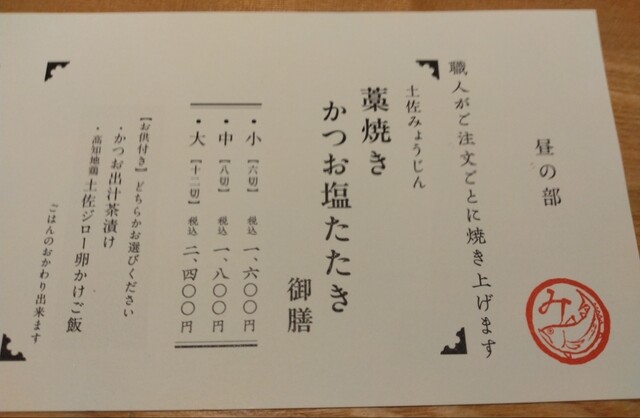 昼の部
職人がご注文ごとに焼き上げます
土佐みょうじん
藁焼き
かつお塩たたき
御膳
・小 【六切】 税込 一、六〇〇円
・中 【八切】 税込 一、八〇〇円
・大 【十二切】 税込 二、四〇〇円
【お供付き】 どちらかお選びください
・かつお出汁茶漬け
・高知地鶏 土佐ジロー卵かけご飯
ごはんのおかわり出来ます
み